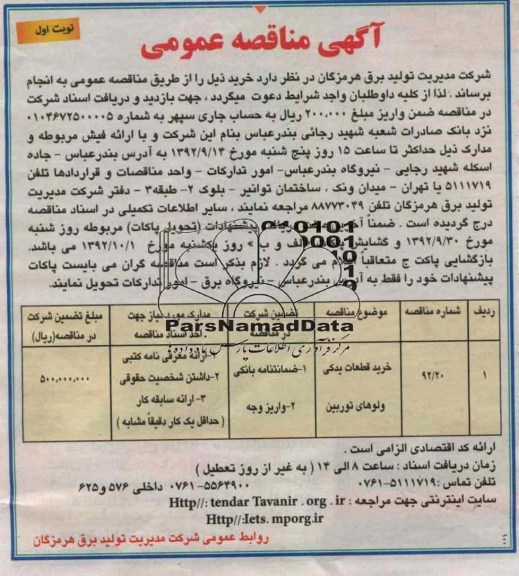 نوبت اول
آگهی مناقصه عمومی
شرکت مدیریت تولید برق هرمزگان در نظر دارد خرید ذیل را از طریق مناقصه عمومی به انجام
برساند . لذا از کلیه داوطلبان واجد شرایط دعوت میگردد ، جهت بازدید و دریافت اسناد شرکت
در مناقصه ضمن واریز مبلغ ۲۰۰,۰۰۰ ریال به حساب جاری سپهر به شماره ۰۱۰۴۶۷۲۵۰۰۰۰۵
نزد بانک صادرات شعبه شهید رجائی بندرعباس بنام این شرکت و با ارائه فیش مربوطه و
مدارک ذیل حداکثر تا ساعت ۱۵ روز پنج شنبه مورخ ۱۳۹۲/۹/۱۴ به آدرس بندرعباس - جاده
اسکله شهید رجایی - نیروگاه بندرعباس- امور تدارکات - واحد مناقصات و قراردادها تلفن
۵۱۱۱۷۱۹ یا تهران - میدان ونک ، ساختمان توانیر - بلوک ۲ - طبقه۳ - دفتر شرکت مدیریت
تولید برق هرمزگان تلفن ۸۸۷۷۳۰۴۹ مراجعه نمایند ، سایر اطلاعات تکمیلی در اسناد مناقصه
درج گردیده است . ضمناً پیشنهادات (تحویل پاکات) مربوطه روز شنبه
مورخ ۱۳۹۲/۹/۳۰ و گشایش ب » روز یکشنبه مورخ ۱۳۹۲/۱۰/۱ می باشد.
بازگشایی پاکت ج متعاقباً می گردد . لازم بذکر است مناقصه گران می بایست پاکات
پیشنهادات خود را فقط به آدرس بندرعباس - نیروگاه برق - امور تدارکات تحویل نمایند.
ParsNamadData
ردیف شماره مناقصه موضوع مناقصه تضمین شرکت در مناقصه مدارک مورد نیاز جهت اخذ اسناد مناقصه مبلغ تضمین شرکت در مناقصه(ریال)
۱ ۹۲/۲۰ خرید قطعات یدکی ولوهای توربین ۱-ضمانتنامه بانکی ۲-واریز وجه ارائه معرفی نامه کتبی ۲-داشتن شخصیت حقوقی ۳- ارائه سابقه کار ( حداقل یک کار دقیقاً مشابه ) ۵۰۰,۰۰۰,۰۰۰
ارائه کد اقتصادی الزامی است .
زمان دریافت اسناد : ساعت ۸ الی ۱۴ ( به غیر از روز تعطیل )
تلفن تماس :۵۱۱۱۷۱۹-۰۷۶۱ ۵۵۶۴۹۰۰-۰۷۶۱ داخلی ۵۷۶ و ۶۲۵
سایت اینترنتی جهت مراجعه : Http//: tendar Tavanir . org . ir
Http//:Iets. mporg.ir
روابط عمومی شرکت مدیریت تولید برق هرمزگان